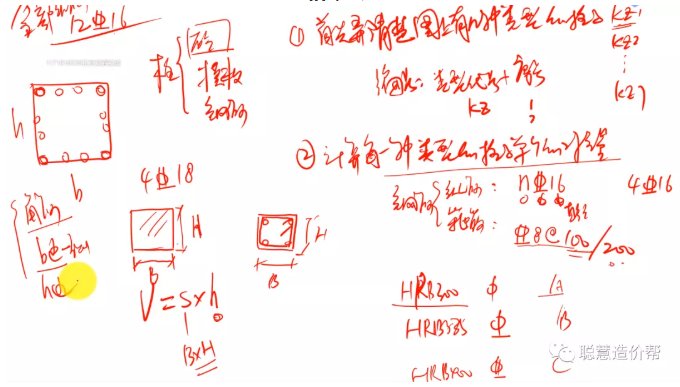 全部 12⌽16
柱
砼
模板
钢筋
h
b
角筋
b边一侧
h边
4⌽18
H
B
H
B
V=S×h
B×H
① 首先弄清楚图上有几种类型的柱子 KZ1
KZ2
⋮
KZ7
编号: 类型代号+序号
KZ 1
② 计算每一种类型的柱子单个的工程量
钢筋
纵筋: n⌽16 4⌽16
箍筋: ⌽8@100/200
直径
HRB300 Φ A
HRB335 Φ B
HRB400 Φ C
聪慧造价帮